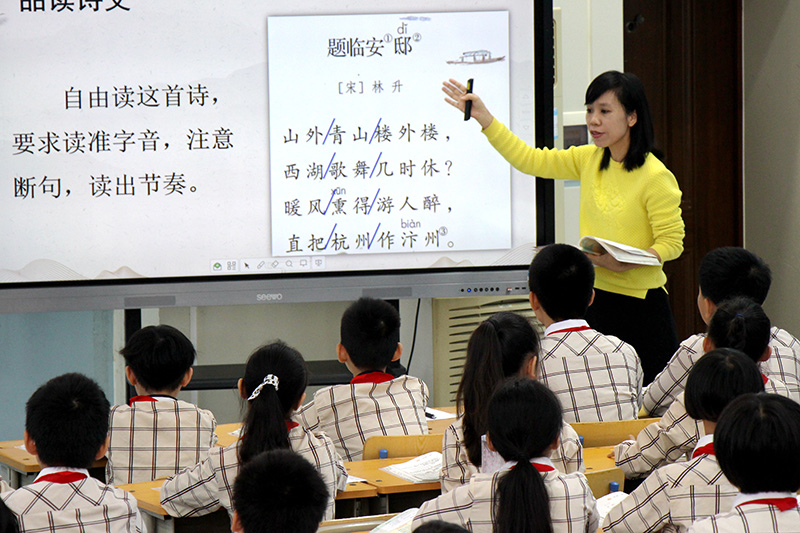 品读诗文
自由读这首诗，
要求读准字音，注意
断句，读出节奏。
dǐ
题临安①邸②
［宋］林 升
山外/青山/楼外楼，
西湖/歌舞/几时休？
xūn
暖风/熏得/游人醉，
biàn
直把/杭州/作汴州③。
seewo